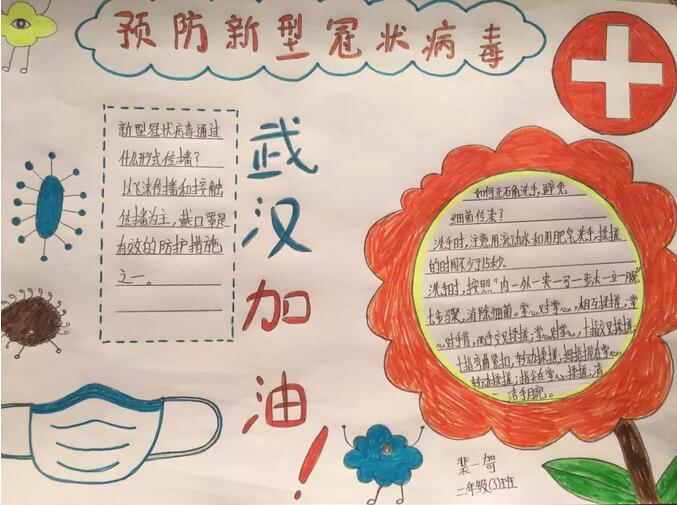 预防新型冠状病毒
新型冠状病毒通过
什么形式传播?
以飞沫传播和接触
传播为主,戴口罩是
有效的防护措施
之一。
武
汉
加
油!
如何正确洗手,避免
细菌传来?
洗手时,注意用流动水和用肥皂洗手,揉搓
的时间不少于15秒.
洗手时,按照"内一外一夹一弓一步大一立一腕"
七步骤,消除细菌。掌心对掌心,相互揉搓;掌
心对手背,两手交叉揉搓;掌心对掌心,十指交叉揉搓;
十指弯曲紧扣,转动揉搓;拇指握在掌心,
转动揉搓;指尖在掌心揉搓;清
洁手腕。
裴一哿
二年级(3)班